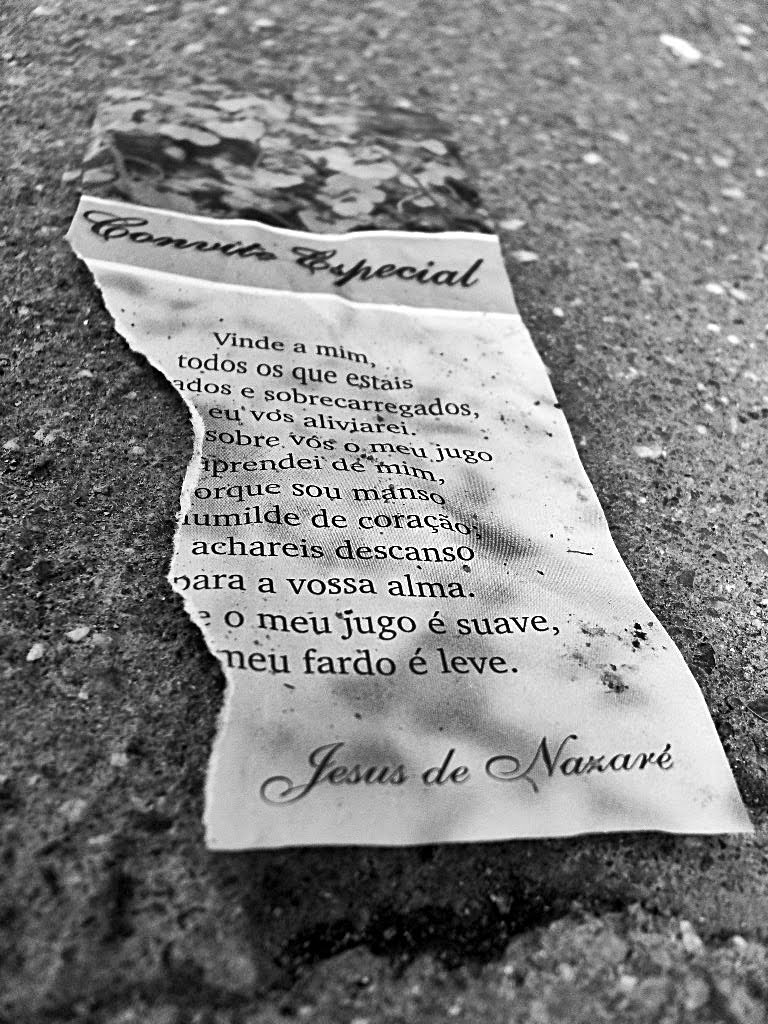 Convite Especial
Vinde a mim,
todos os que estais
ados e sobrecarregados,
eu vos aliviarei.
sobre vós o meu jugo
aprendei de mim,
orque sou manso
umilde de coração;
achareis descanso
para a vossa alma.
e o meu jugo é suave,
meu fardo é leve.
Jesus de Nazaré